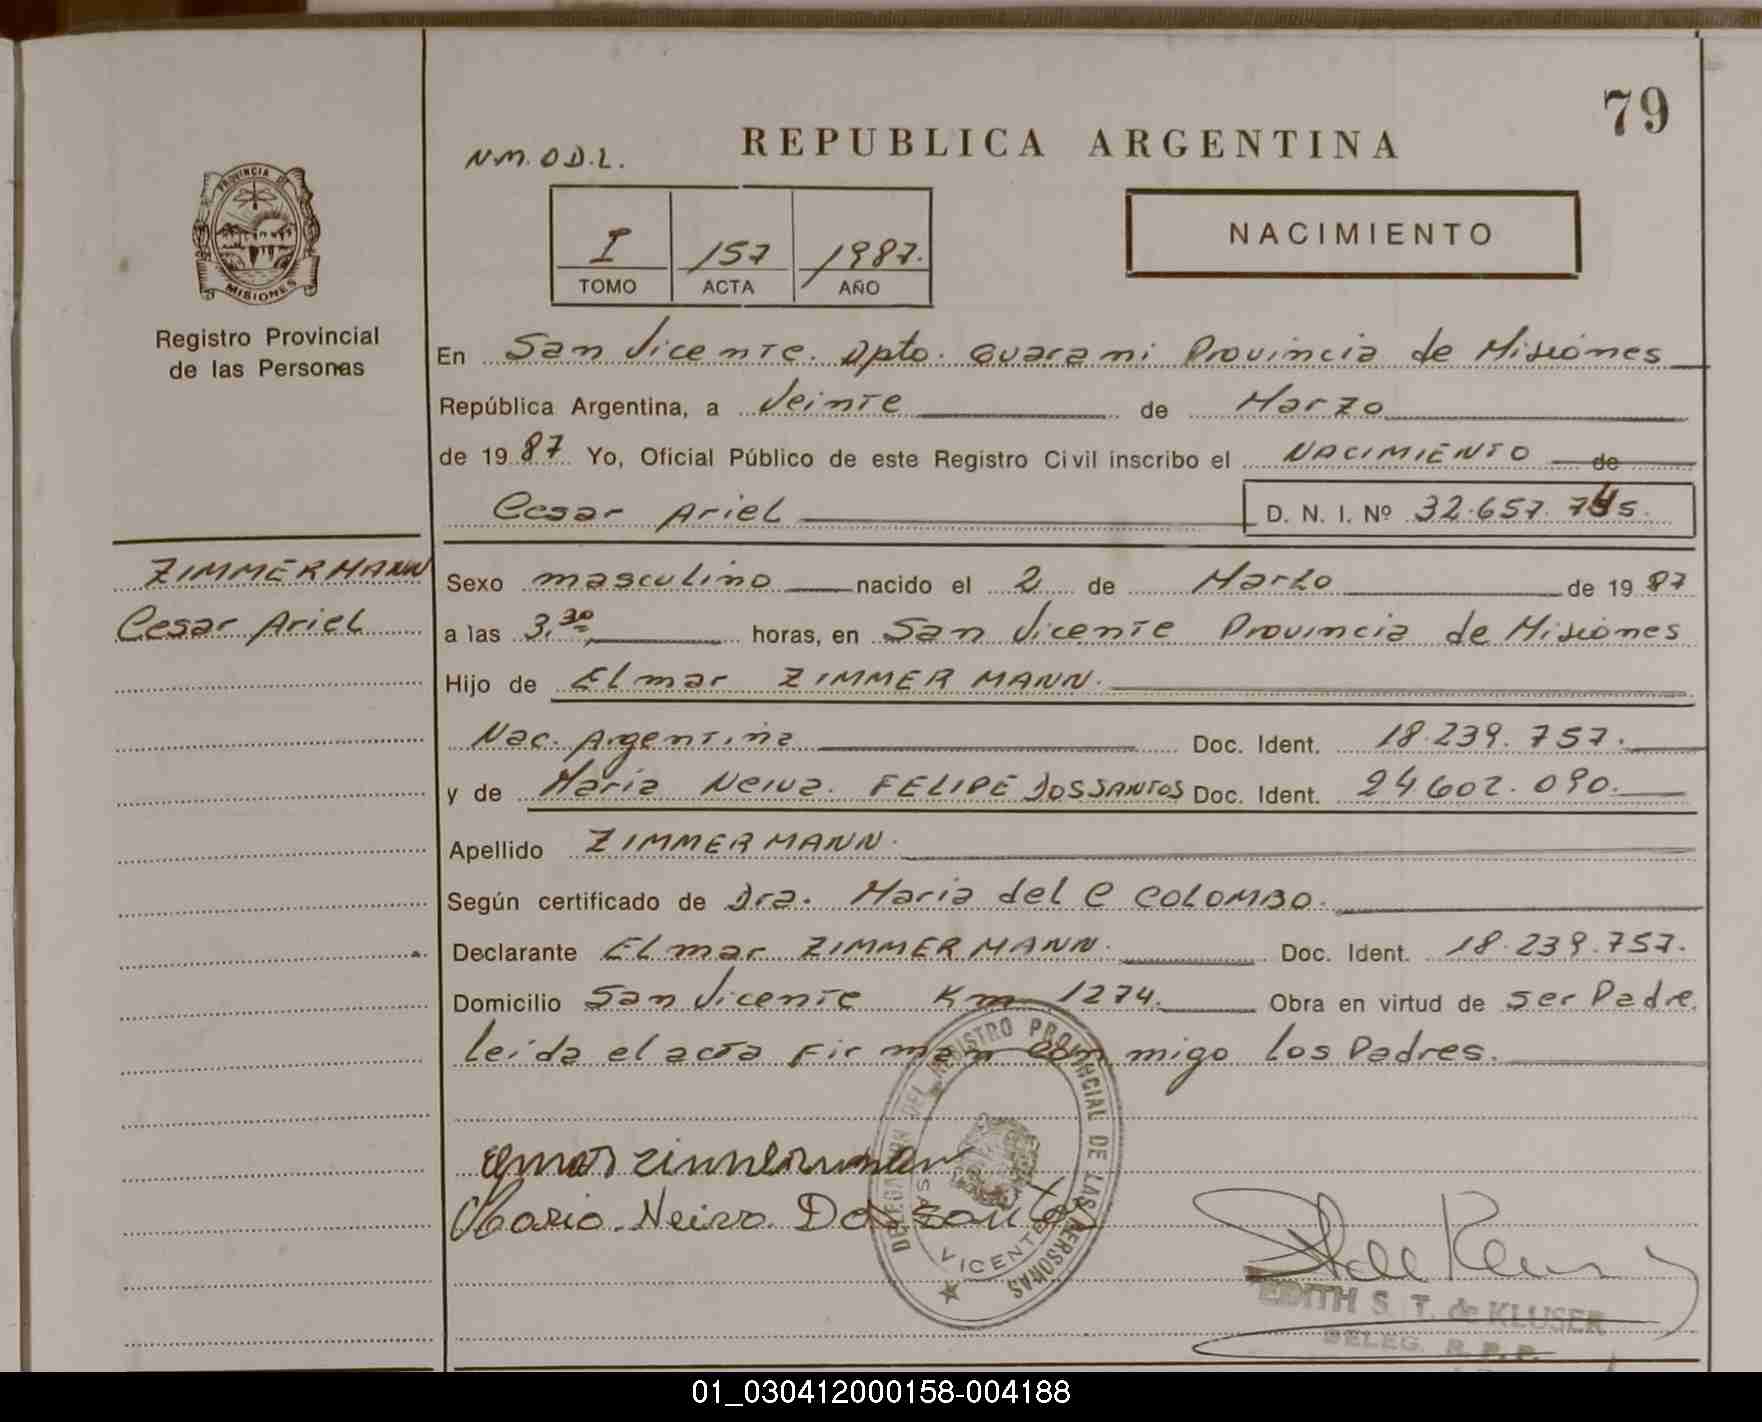 79
REPUBLICA ARGENTINA
N.M. O D.L.
PROVINCIA DE
MISIONES
I 157 1987.
TOMO ACTA AÑO
NACIMIENTO
Registro Provincial
de las Personas
En San Vicente. Dpto. Guarani Provincia de Misiones
República Argentina, a Veinte de Marzo
de 1987 Yo, Oficial Público de este Registro Civil inscribo el NACIMIENTO de
Cesar Ariel D. N. I. Nº 32.657.745.
ZIMMERMANN
Cesar Ariel
Sexo masculino nacido el 2 de Marzo de 1987
a las 3,30 horas, en San Vicente Provincia de Misiones
Hijo de Elmar ZIMMERMANN.
Nac. Argentina Doc. Ident. 18.239.757.
y de Maria Neiva. FELIPE DOSSANTOS Doc. Ident. 24.602.090.
Apellido ZIMMERMANN.
Según certificado de Dra. Maria del C COLOMBO.
Declarante Elmar ZIMMERMANN. Doc. Ident. 18.239.757.
Domicilio San Vicente Km 1274. Obra en virtud de ser Padre.
leida el acta Firman con migo los Padres.
DELEGACION DEL REGISTRO PROVINCIAL DE LAS PERSONAS
SAN VICENTE
Maria Neiva Dos santos
EDITH S. T. de KLUSER
DELEG. R. P. P.
01_030412000158-004188